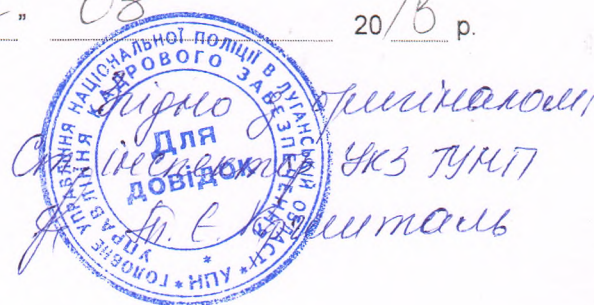 " 08 2018 р.
ГОЛОВНЕ УПРАВЛІННЯ НАЦІОНАЛЬНОЇ ПОЛІЦІЇ В ЛУГАНСЬКІЙ ОБЛАСТІ * НПУ *
УПРАВЛІННЯ КАДРОВОГО ЗАБЕЗПЕЧЕННЯ *
Для
довідок
Згідно з оригіналом
Ст. інспектор УКЗ ГУНП
Є. Кришталь